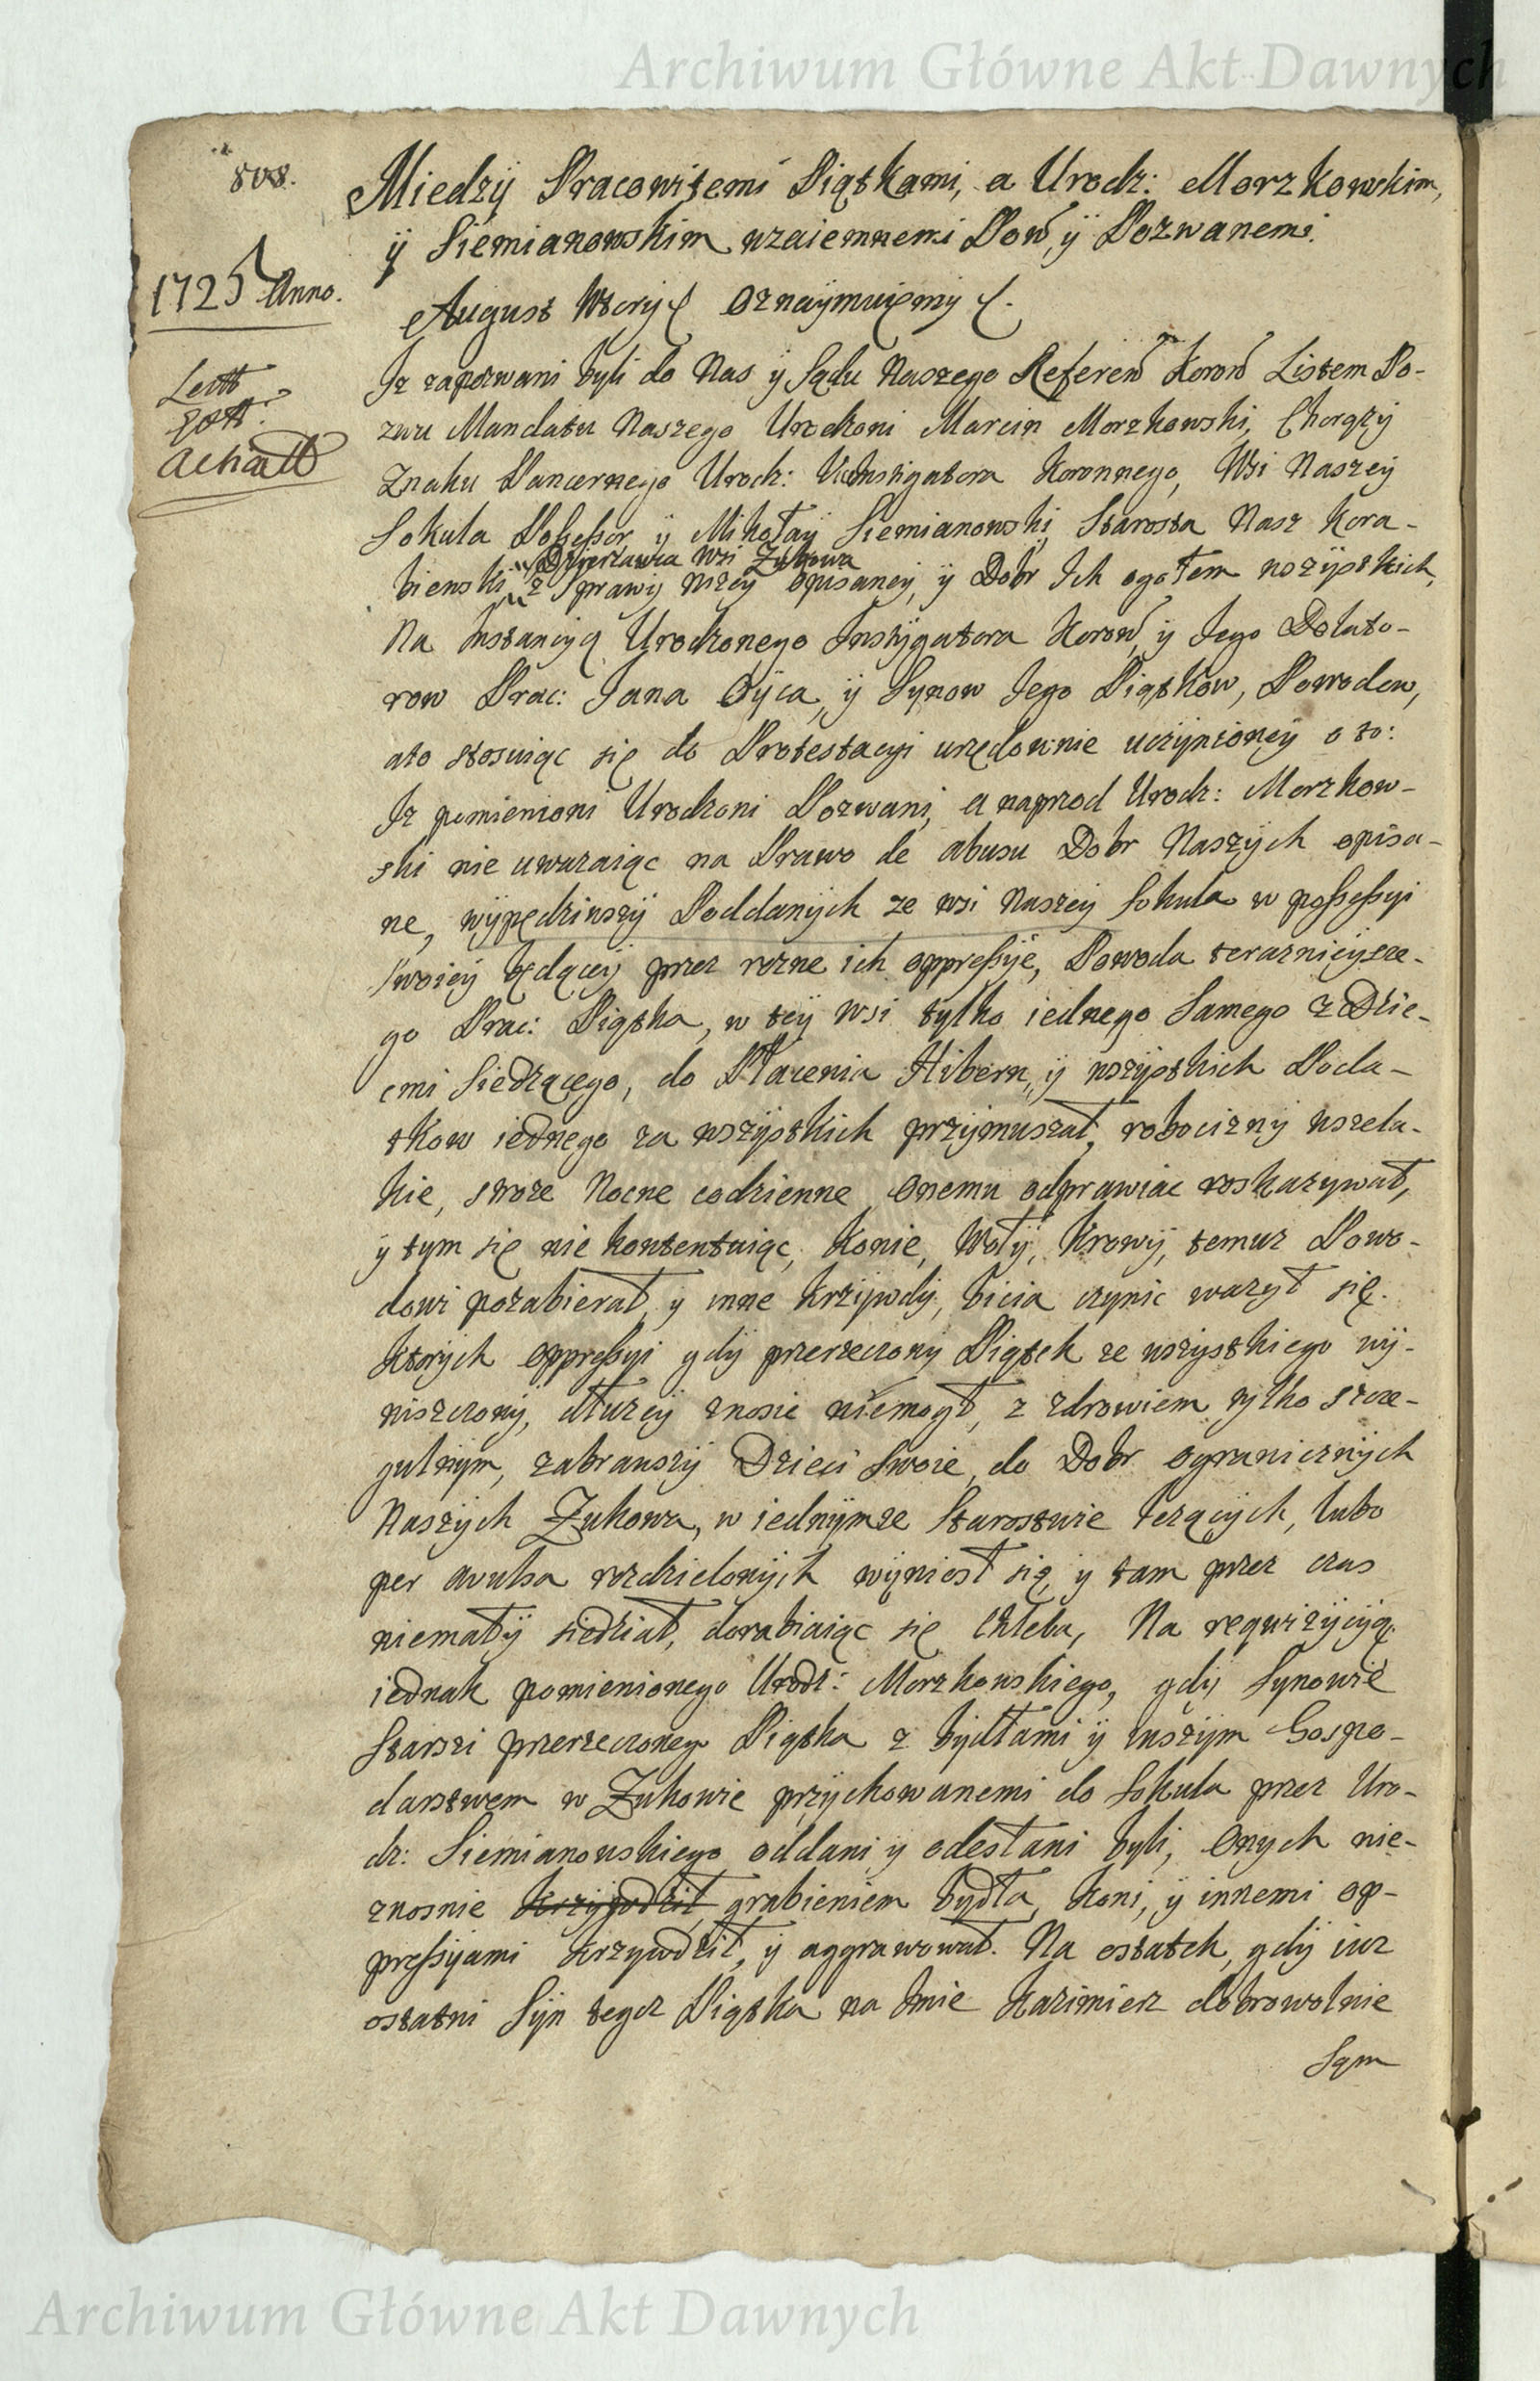 Archiwum Główne Akt Dawnych
808.
Miedzÿ Pracowitemi Piątkami, a Urodz: Morzkowskim,
ÿ Siemianowskim wzaiemnemi Pow, ÿ Pozwanemi.
1725 Anno.
August Wtory Oznaÿmuięmÿ
Iz zapozwani byli do Nas ÿ Sądu Naszego Referen Koron Listem Po-
Lectt
zwu Mandatu Naszego Urodzoni Marcin Morzkowski, Chorązÿ
Znaku Pancernego Urodz: Instigatora Koronnego, Wsi Naszeÿ
Sokula Possessor, ÿ Mikołaÿ Siemianowski, Starosta Nasz Kora-
Dzierzawca wsi Zukowa
bienski, z sprawÿ nizeÿ opisaneÿ, ÿ Dobr Ich ogołem wszÿstkich,
Na Instancÿą Urodzonego Instÿgatora Koron, ÿ Jego Delato-
row Prac: Jana Oÿca, ÿ Synow Jego Piątkow, Powodow,
ato stosuiąc się do Protestacyi urzędownie uczÿnioneÿ o to:
Iz pomienioni Urodzoni Pozwani, a naprzod Urodz: Morzkow-
ski nie uwazaiąc na Prawo de abusu Dobr Naszÿch opisa-
ne, wÿpędziwszÿ Poddanÿch ze wsi Naszeÿ Sokula w possessyi
swoieÿ będąceÿ przez rozne ich oppressÿe, Powoda teraznieÿsze-
go Prac: Piątka, w teÿ wsi tylko iednego Samego z Dzie-
cmi Siedzącego, do Płacenia Hibern, ÿ wszÿstkich Poda-
tkow iednego za wszÿstkich przÿmuszał, robociznÿ wszela-
kie, stroze Nocne codzienne onemu odprawiac roskazywał,
y tym się nie kontentuiąc, Konie, Wołÿ, Krowÿ, temuz Powo-
dowi pozabierał, y inne krzÿwdÿ, bicia czynic wazył się.
Ktorych oppressyi gdÿ przerzeczony Piątek ze wszystkiego wÿ-
niszczonÿ, dłuzeÿ znosic niemogł, z zdrowiem tylko szcze-
gulnÿm, zabrawszÿ Dzieci swoie, do Dobr ogranicznÿch
Naszÿch Zukowa, w iednÿmze Starostwie lezącÿch, lubo
per avulsa rozdzielonÿch wÿniosł się, y tam przez czas
niemałÿ siedział, dorabiaiąc się Chleba, Na requizÿcÿą
iednak pomienionego Urodz: Morzkowskiego, gdÿ Synowie
Starsi przerzeczonego Piątka z bydłami ÿ inszÿm Gospo-
darstwem w Zukowie przÿchowanemi do Sokula przez Uro-
dz: Siemianowskiego oddani y odesłani byli, Onych nie-
znosnie krzÿwdził grabieniem bydła, koni, ÿ innemi op-
pressyami krzywdził, ÿ aggrawował. Na ostatek, gdÿ iuz
ostatni Sÿn tegoz Piątka na Imie Kazimierz dobrowolnie
Sąm
Archiwum Główne Akt Dawnych